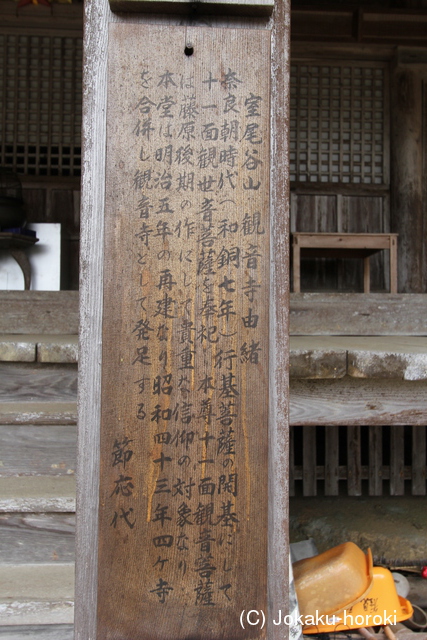 室尾谷山 観音寺由緒
奈良朝時代(和銅七年)行基菩薩の開基にして
十一面観世音菩薩を奉祀し本尊十一面観音菩薩
は藤原後期の作にして貴重な信仰の対象なり
本堂は明治五年の再建なり昭和四十三年四ケ寺
を合併し観音寺として発足する
節応代
(C) Jokaku horoki